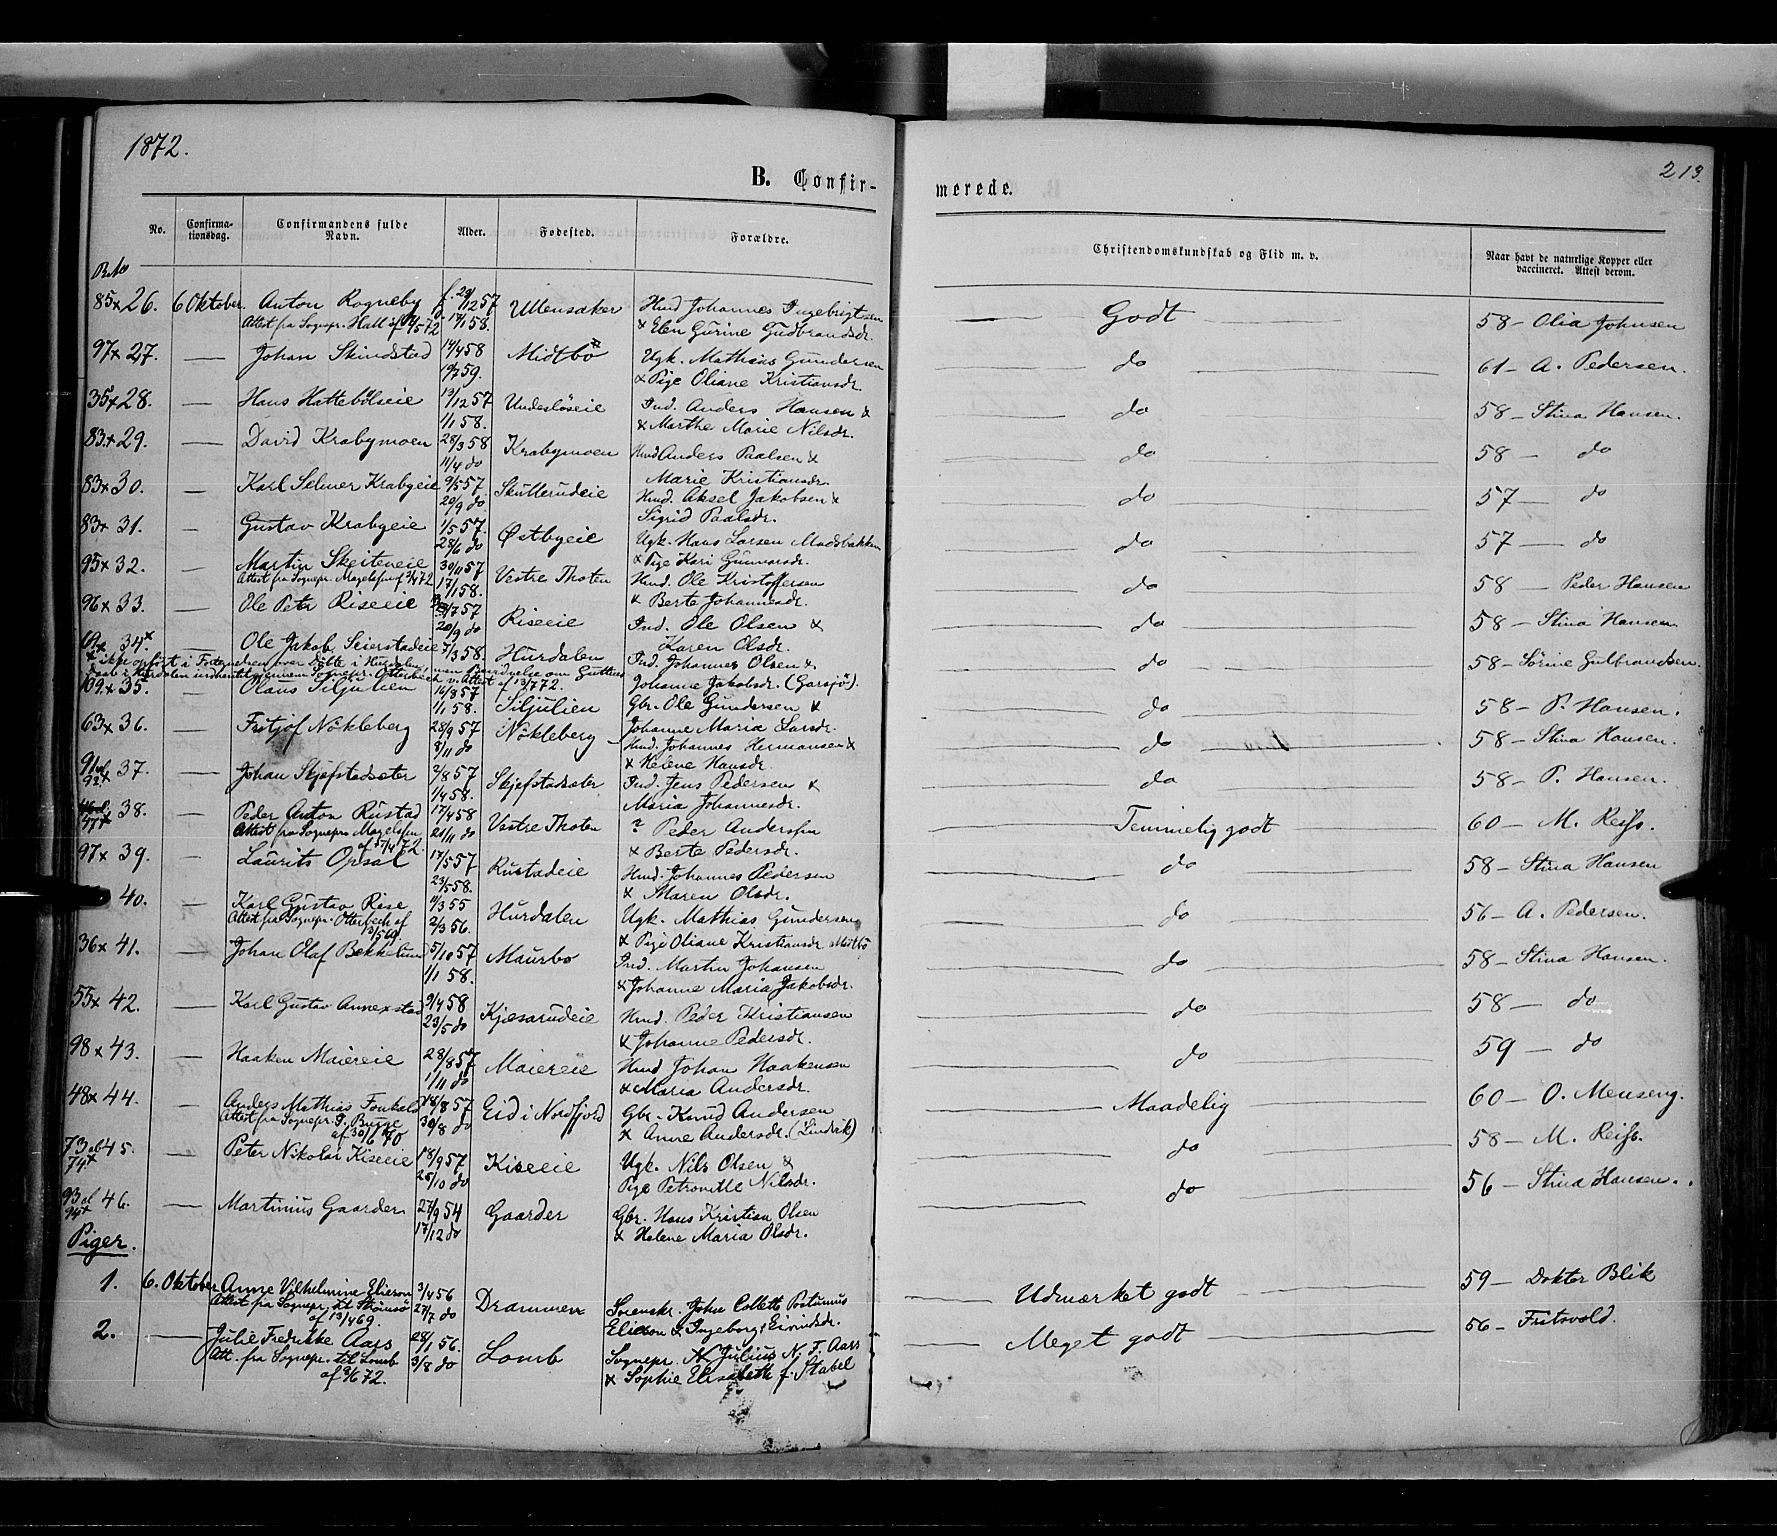 1872.
213.
B. Confir-
merede.
No.
Confirma-
tionsdag.
Confirmandens fulde
Navn.
Alder.
Fødested.
Forældre.
Christendomskundskab og Flid m. v.
Naar havt de naturlige Kopper eller
vaccineret. Attest derom.
85x 26. 6 Oktober Anton Rogneby f. 29/12 57 Ullensaker Hmd Johannes Ingebrigtsen Godt 58 - Olia Johnsen
Attest fra Sognepr. Hall af 72 17/1 58. & Elen Gurine Gudbrandsdr.
97x 27. — Johan Skindstad 14/4 58 Midtbö Ugk. Mathias Gundersen do 61 - A. Pedersen.
10/7 59. & Pige Oliane Kristiansdr.
35x 28. — Hans Hattebölseie 13/12 57 Undeslöseie Ind. Anders Hansen & do 58 - Stina Hansen.
1/1 58. & Marthe Marie Nilsdr.
83x 29. — David Krabymoen 28/3 58 Krabymoen Hmd Anders Paalsen & do 58 — do
11/4 do Marie Kristiansdr.
83x 30. — Karl Selmer Krabyeie 9/5 57 Skutterudeie Hmd. Aksel Jakobsen & do 57 — do
20/9 do Sigrid Paalsdr.
83x 31. — Gustav Krabyeie 1/5 57. Østbyeie Ugk. Hans Larsen Madsbakken do 57 — do
28/6 do & Pige Kari Gunvorsdr.
95x 32. — Martin Skeiteneie 30/11 57 Vestre Thoten Hmd. Ole Kristoffersen do 58 — Peder Hansen
Attest fra Sognepr. Magelssen af 72 17/1 58. & Berte Johannesdr.
96x 33. — Ole Peter Riseeie /7 57 Riseeie Ind. Ole Olsen & do 58 - Stina Hansen
20/9 do Karen Olsdr.
69x 34.x Ole Jakob Seierstadeie 7/3 58. Hurdalen Ind. Johannes Olsen & do 58 - Sörine Gulbrandsen.
x ikke opfört i Fortegnelsen over döbte i Hurdalen, men om Guttens
Daab i Hurdalen indhentet gjennem Sognepr. Otterbech v. Attest af 13/7 72. Johanne Jakobsdr. (Garsjö).
109x 35. — Olaus Siljulien 16/8 57 Siljulien Gbr. Ole Gundersen & do 58 - P. Hansen.
1/1 58. Johanne Maria Larsdr.
63x 36. — Fritjof Nökleberg 28/9 57 Nökleberg Hmd. Johannes Hermansen & do 58 - Stina Hansen.
8/11 do & Helene Hansdr.
91 el 92x 37. — Johan Skjefstadsæter 2/8 57 Skjefstadsæter Ind. Jens Pedersen & do 58 - P. Hansen.
1/4 58. Maria Johannesdr.
47x 38. — Peder Anton Rustad 17/4 58 Vestre Thoten ? Peder Andersen Temmelig godt 60 - M. Reiss.
Attest fra Sognepr. Magelssen 21/11 do & Berte Pedersdr.
af 5/4 72.
97x 39. — Laurits Opsal 17/5 57 Rustadeie Hmd. Johannes Pedersen do 58 - Stina Hansen
23/5 58. & Maren Olsdr.
40. — Karl Gustav Rise 9/3 55 Hurdalen Ugk. Mathias Gundersen do 56 - A. Pedersen.
Attest fra Sognepr. Otterbech af 2/3 56. & Pige Oliane Kristiansdr. Midtbö
36x 41. — Johan Olaf Bekkelund 5/10 57 Maurbo Ind. Martin Johansen do 58 - Stina Hansen.
1/1 58. & Johanne Maria Jakobsdr.
55x 42. — Karl Gustav Annexstad 9/4 58 Kjæsarudeie Hmd. Peder Kristiansen do 58 — do
23/5 do & Johanne Pedersdr.
98x 43. — Haaken Maiereie 28/8 57 Maiereie Hmd Johan Haakensen do 59 — do
1/11 do & Maria Andersdr.
48x 44. — Anders Mathias Fonkald 18/8 57 Eid i Nordfjord Gbr. Knud Andersen Maadelig 60 - O. Menseng.
Attest fra Sognepr. P. Bugge 30/8 do & Anne Andersdr. (Lindvik)
af 30/6 70
73 el 74x 45. — Peter Nikolai Kiseeie 18/9 57 Kiseeie Ugk. Nils Olsen & do 58 - M. Reiss.
25/10 do Pige Petronille Nilsdr.
93 el 94x 46. — Martinius Gaarder 27/9 54 Gaarder Gbr. Hans Kristian Olsen do 56 - Stina Hansen.
17/12 do & Helene Maria Olsdr.
Piger.
1. 6. Oktober Anne Vilhelmine Elieson 3/4 56 Drammen Sorenskr. John Collett Postumus Udmærket godt 59 - Doktor Blik
Attest fra Sognepr. til Strömsö 27/7 do Elieson & Ingeborg Eivindsdr.
af 13/4 69.
2. — Julie Fredrikke Aars 28/1 56. Lomb Sognepr. Julius N. F. Aars Meget godt 56 - Fritsvold.
Att. fra Sognepr. til Lomb 3/8 do & Sophie Elisabeth f. Stabel
af 9/6 72.